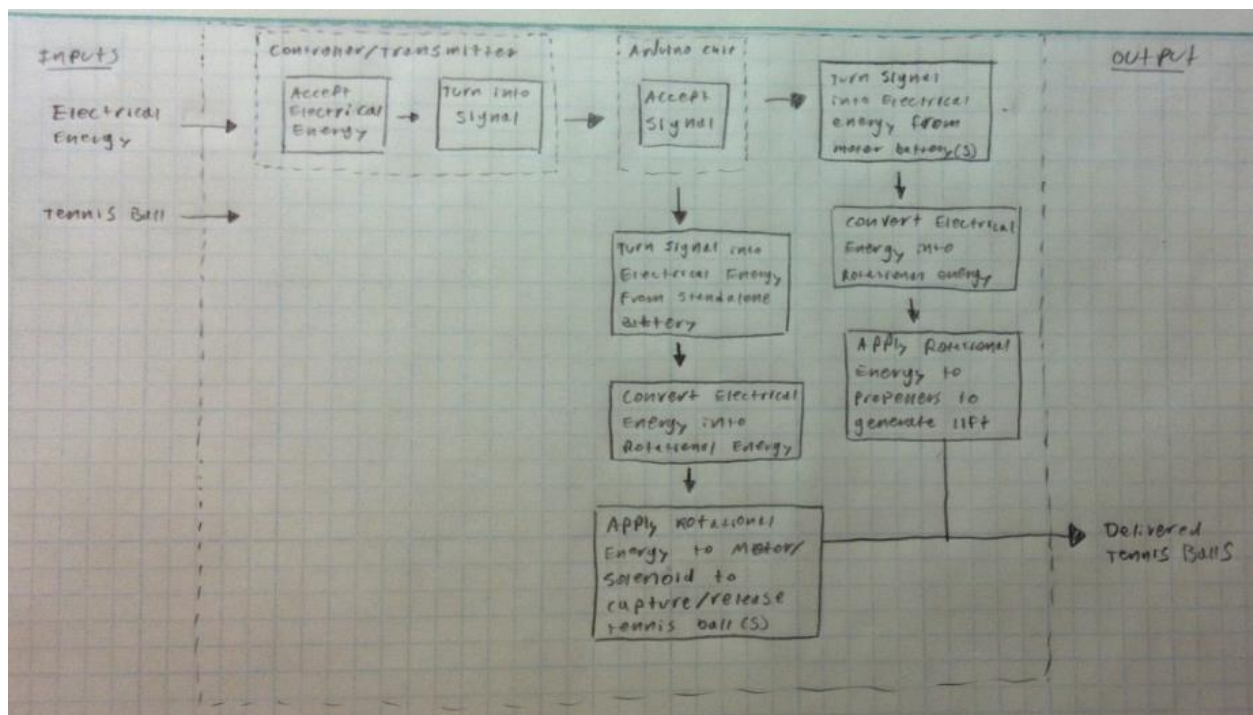 Inputs
Electrical
Energy
Tennis Ball
Controller/Transmitter
Accept
Electrical
Energy
Turn into
Signal
Arduino chip
Accept
Signal
Turn Signal
into Electrical
energy from
motor battery(s)
Convert Electrical
Energy into
Rotational energy
Apply Rotational
Energy to
propellers to
generate lift
Turn Signal into
Electrical Energy
From Standalone
Battery
Convert Electrical
Energy into
Rotational Energy
Apply Rotational
Energy to Motor/
solenoid to
capture/release
tennis ball(s)
Output
Delivered
Tennis Balls